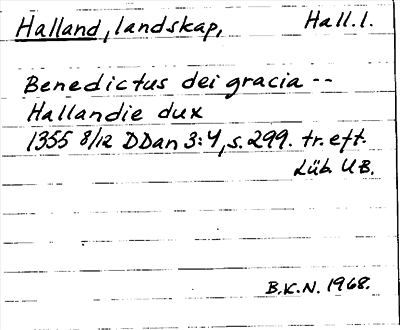 Halland, landskap, Hall.l.
Benedictus dei gracia --
Hallandie dux
1355 8/12 DDan 3:4, s. 299. tr. eft.
Lüb. UB.
B.K.N. 1968.